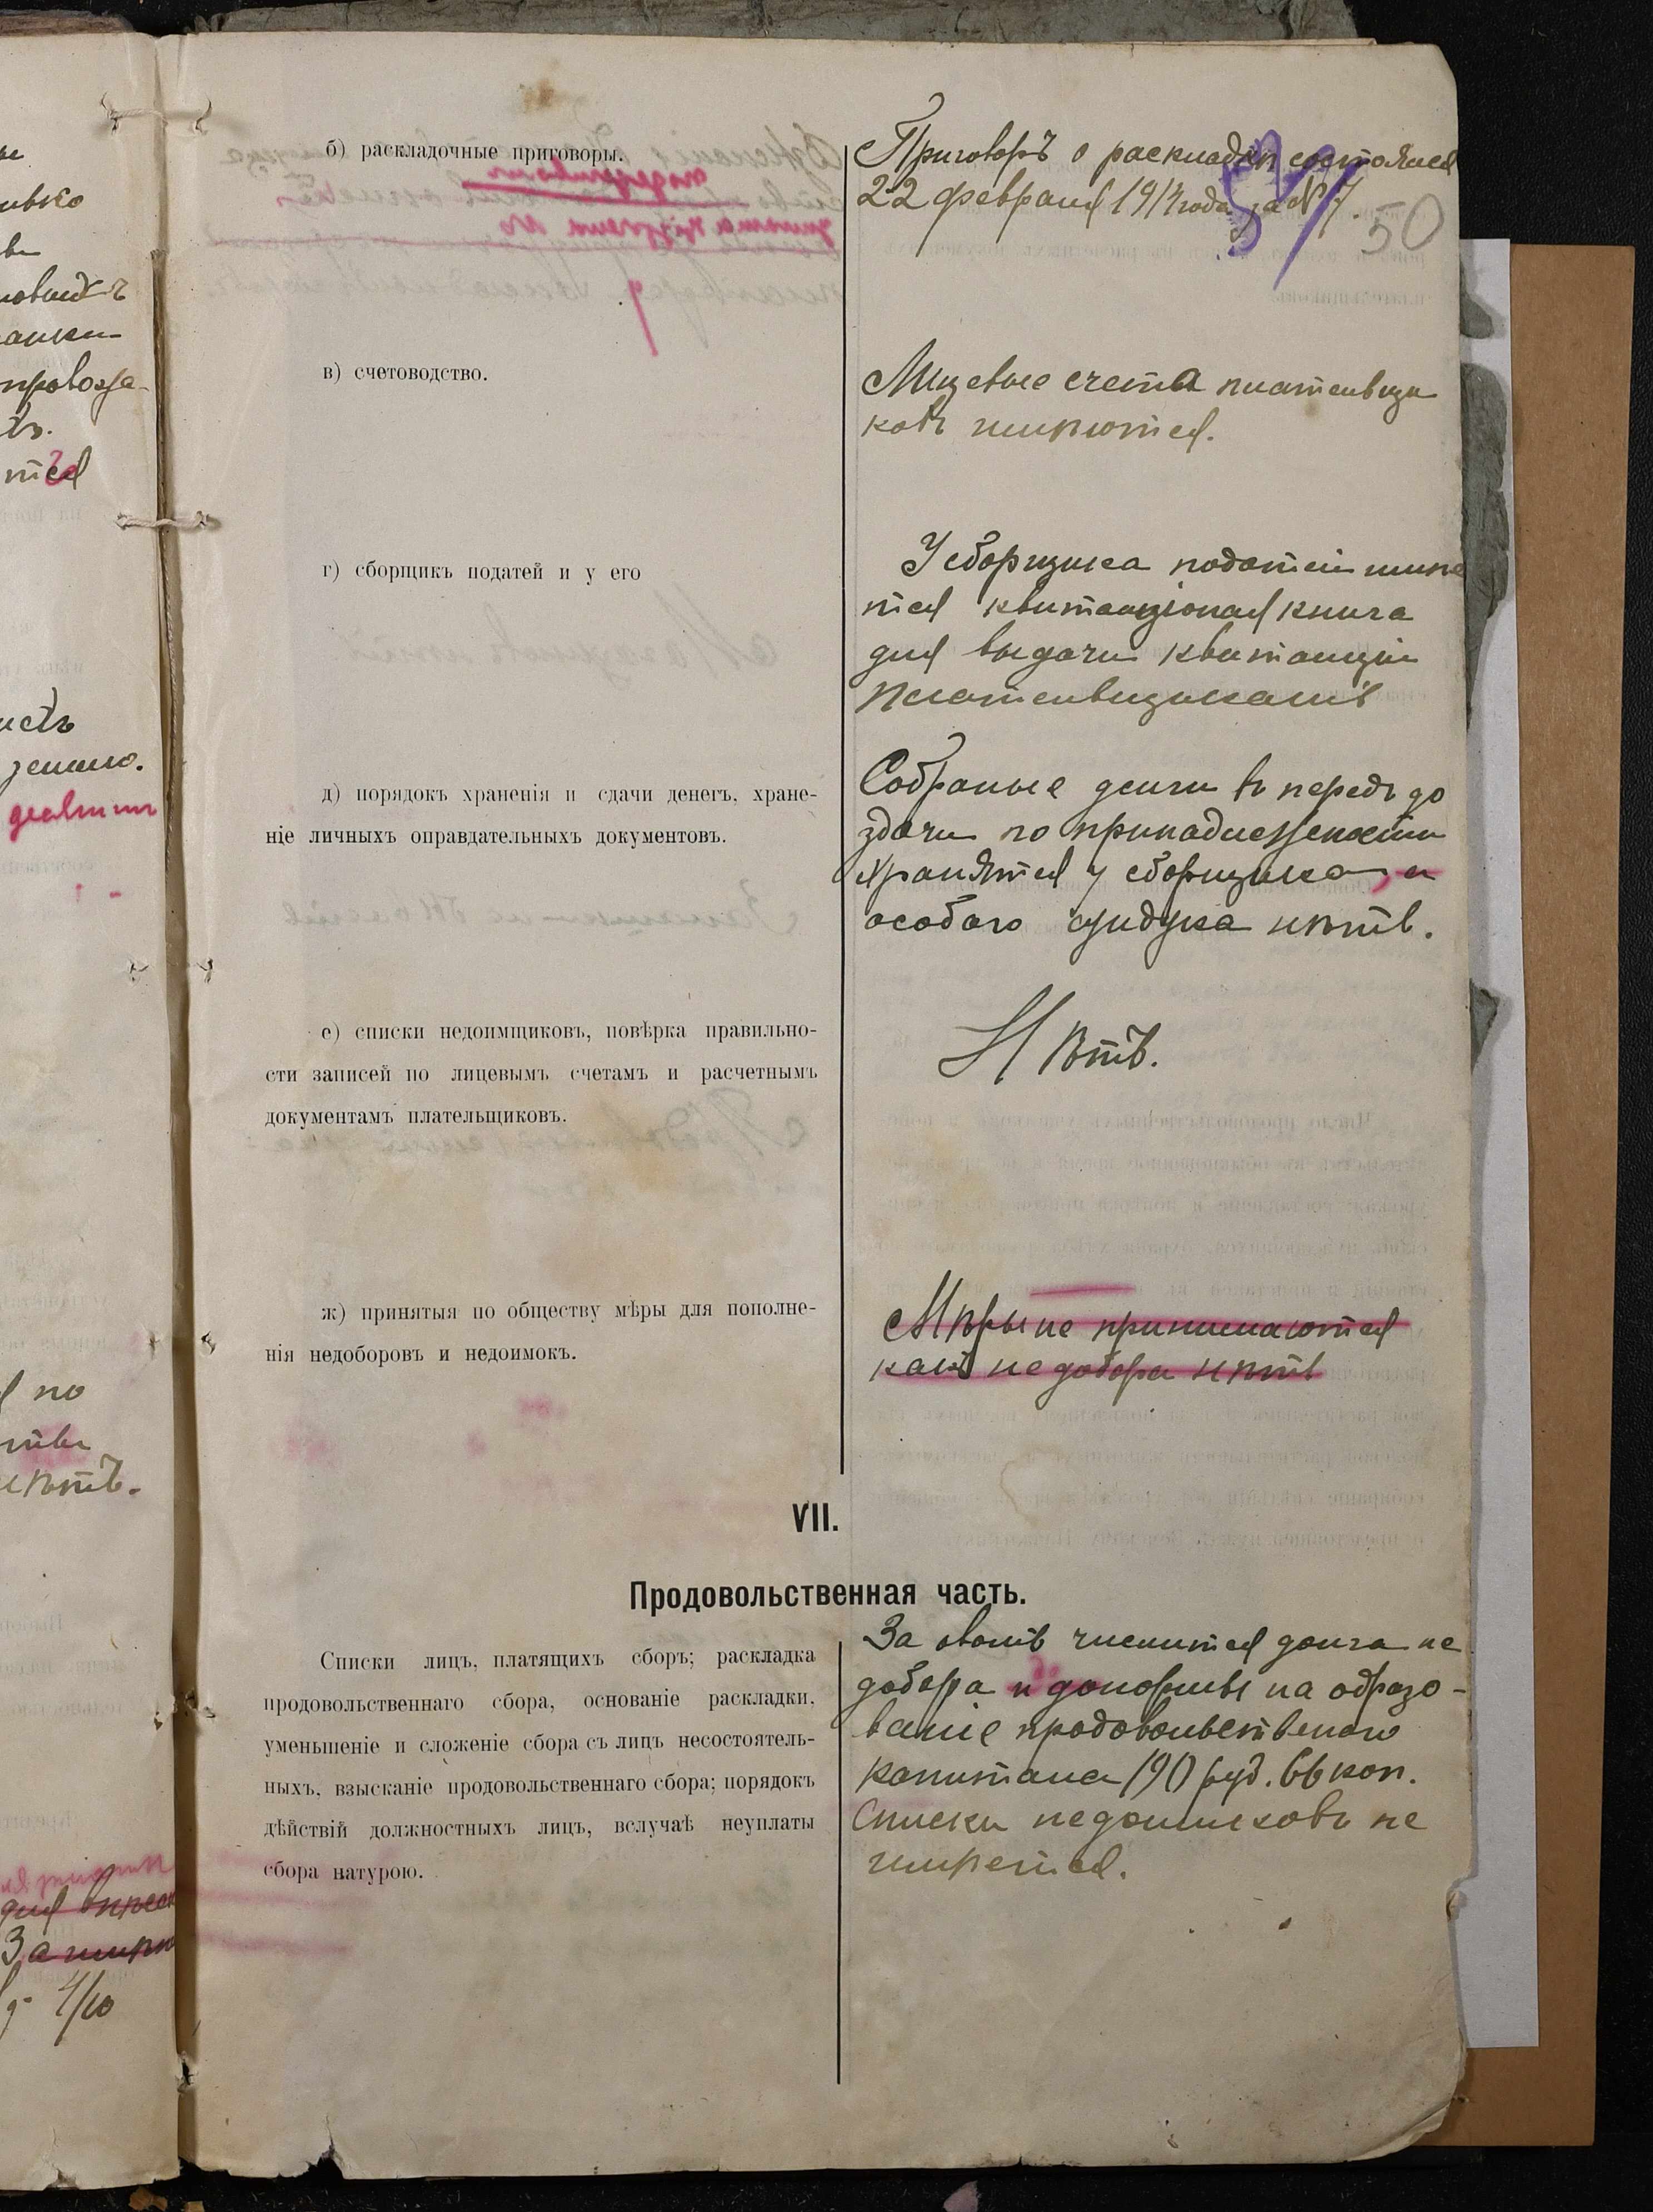 б) раскладочные приговоры.
Приговоръ о раскладкѣ состоялся
22 февраля 1914 года за № 7.
50
в) счетоводство.
Лицевые счета плательщи
ковъ имѣются.
г) сборщикъ податей и у его
У сборщика податей имѣе
тся квитанціоная книга
для выдачи квитанціи
плательщикамъ
д) порядокъ храненія и сдачи денегъ, хране-
ніе личныхъ оправдательныхъ документовъ.
Собраные денги въ передъ до
здачи по принадлежености
хранятся у сборщика, а
особаго сундука нѣтъ.
е) списки недоимщиковъ, повѣрка правильно-
сти записей по лицевымъ счетамъ и расчетнымъ
документамъ плательщиковъ.
Нѣтъ.
ж) принятыя по обществу мѣры для пополне-
нія недоборовъ и недоимокъ.
Мѣры не принимаются
какъ не добора нѣтъ
VII.
Продовольственная часть.
Списки лицъ, платящихъ сборъ; раскладка
продовольственнаго сбора, основаніе раскладки,
уменьшеніе и сложеніе сбора съ лицъ несостоятель-
ныхъ, взысканіе продовольственнаго сбора; порядокъ
дѣйствій должностныхъ лицъ, вслучаѣ неуплаты
сбора натурою.
За числится долга не
добора на образо-
ваніе продовольственаго
капитала 190 руб. 66 коп.
Списки недоимковъ не
имѣется.